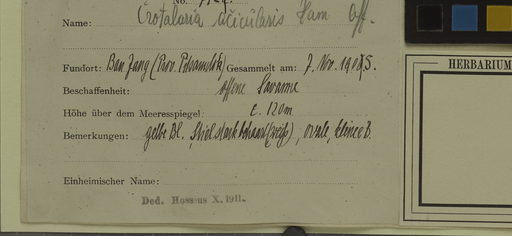 No.
Name: Crotalaria acicularis Ham Aff.
Fundort: Ban Jang (Prov. Petsanulok) Gesammelt am: 7. Nov. 1905.
Beschaffenheit: offene Savanne
Höhe über dem Meeresspiegel: c. 120m
Bemerkungen: gelbe Bl., Stiel stark behaart (weiß), ovale, kleine B.
Einheimischer Name:
Ded. Hosseus X. 1911.
HERBARIUM